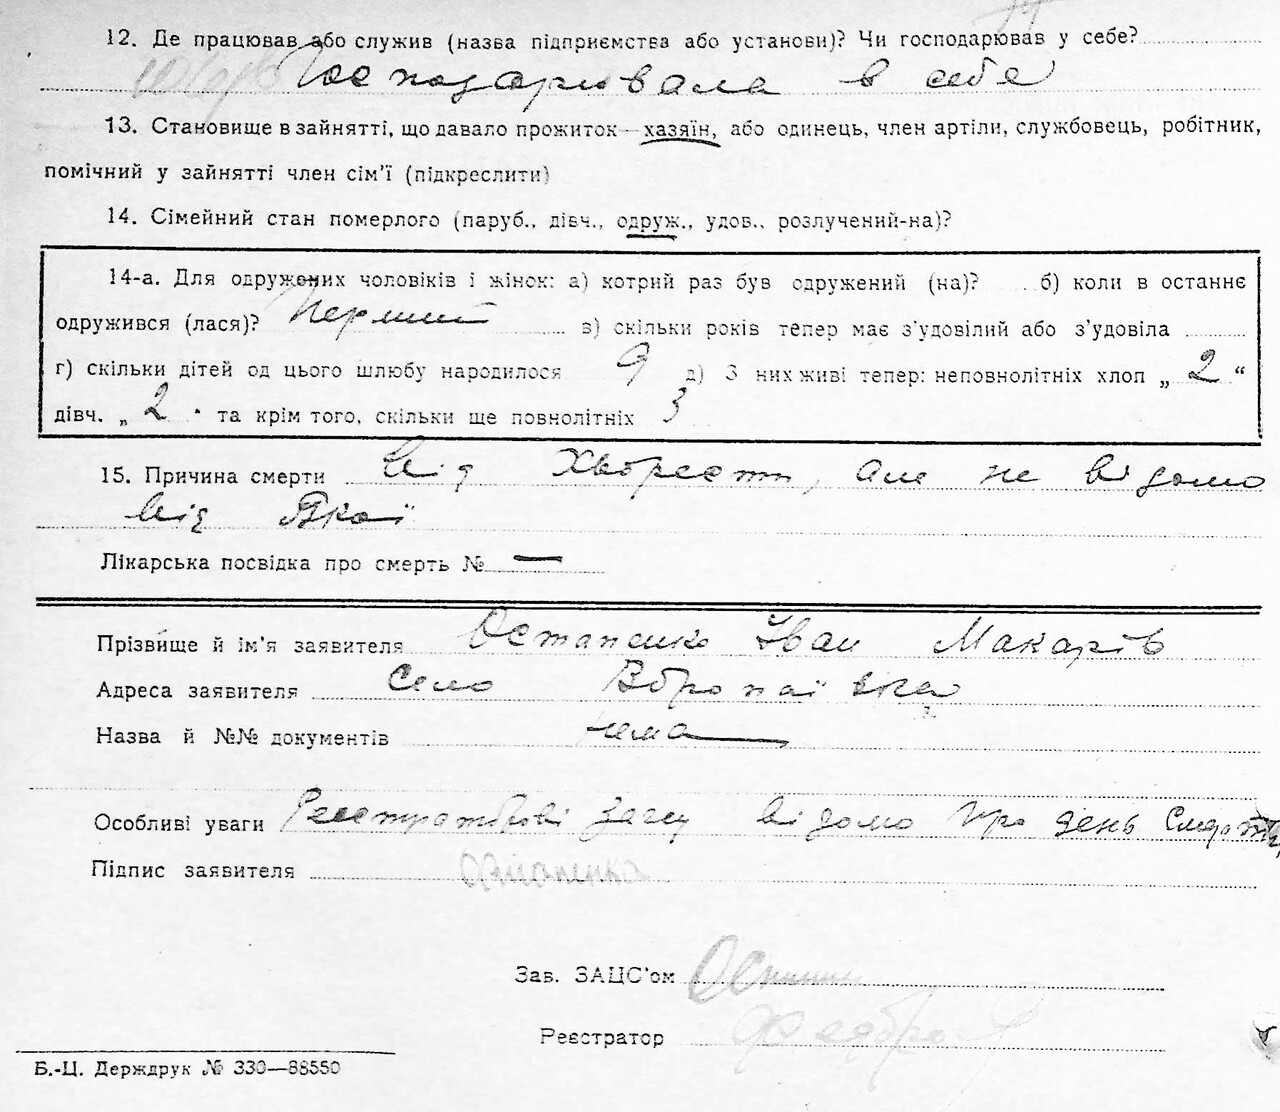 12. Де працював або служив (назва підприємства або установи)? Чи господарював у себе?
Господарювала в себе
13. Становище в зайнятті, що давало прожиток—хазяїн, або одинець, член артіли, службовець, робітник,
помічний у зайнятті член сім’ї (підкреслити)
14. Сімейний стан померлого (паруб., дівч., одруж., удов., розлучений-на)?
14-а. Для одружених чоловіків і жінок: а) котрий раз був одружений (на)? б) коли в останнє
одружився (лася)? Перший в) скільки років тепер має з’удовілий або з’удовіла
г) скільки дітей од цього шлюбу народилося 9 д) З них живі тепер: неповнолітніх хлоп „ 2 “
дівч. „ 2 “ та крім того, скільки ще повнолітніх 3
15. Причина смерти Від Хворости, але не відомо
від Якої
Лікарська посвідка про смерть № —
Прізвище й ім’я заявителя Остапенко Іван Макарів
Адреса заявителя Село
Назва й №№ документів нема
Особливі уваги відомо про день Смерти,
Підпис заявителя Остапенко
Зав. ЗАЦС’ом
Реєстратор
Б.-Ц. Держдрук № 330—88550